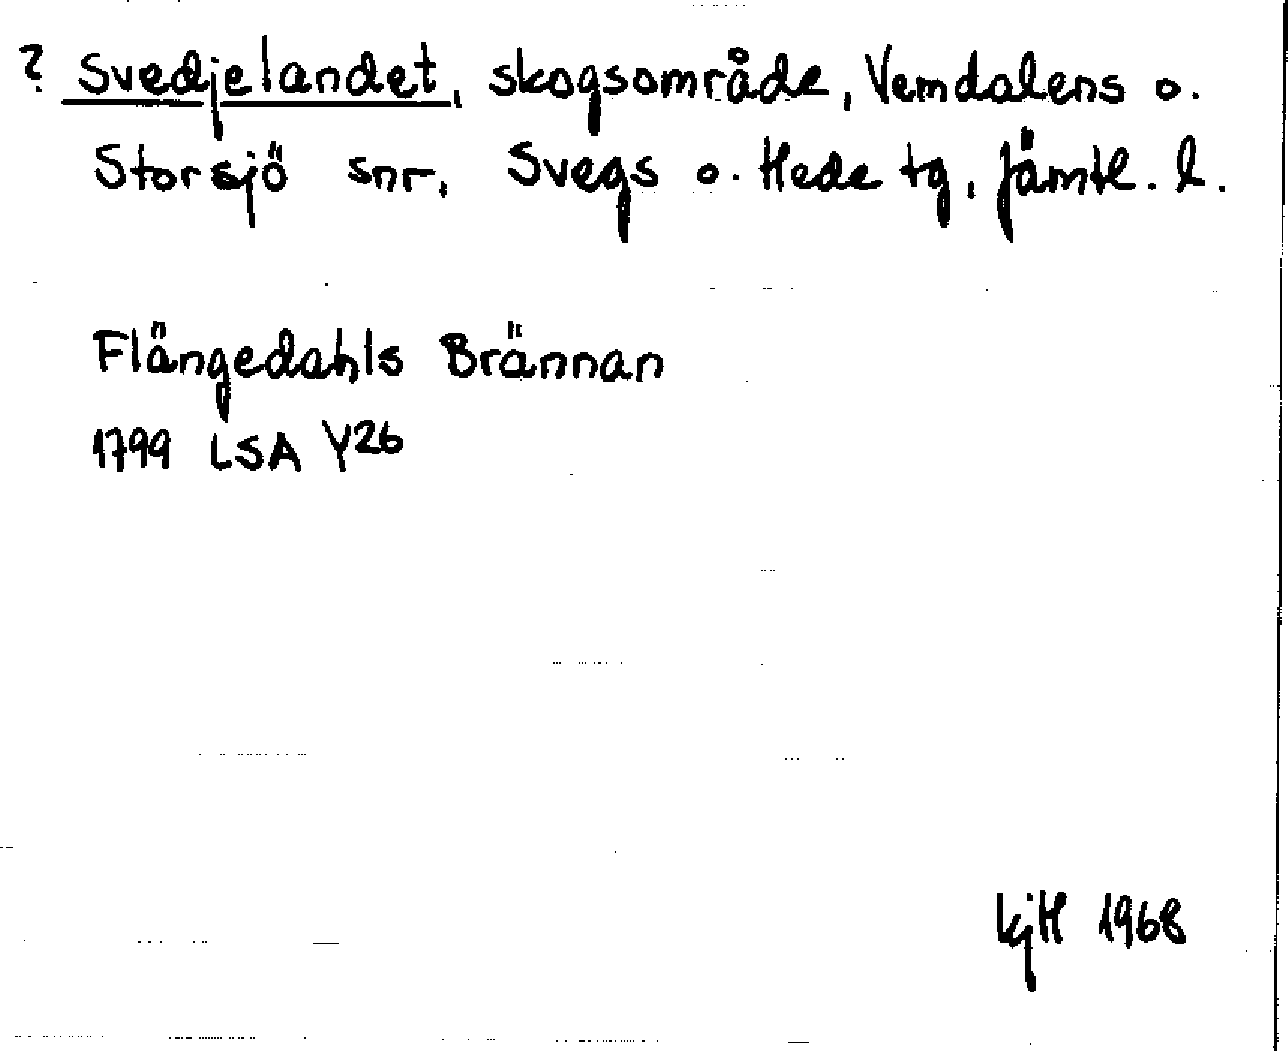 ? Svedjelandet, skogsområde, Vemdalens o.
Storsjö snr, Svegs o. Hede tg, Jämtl. l.
Flängedahls Brännan
1799 LSA Y26
KjH 1968